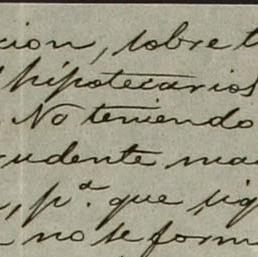 cion, sobre t
hipotecarios
No teniendo
rudente ma
, p.ª que sig
no se form